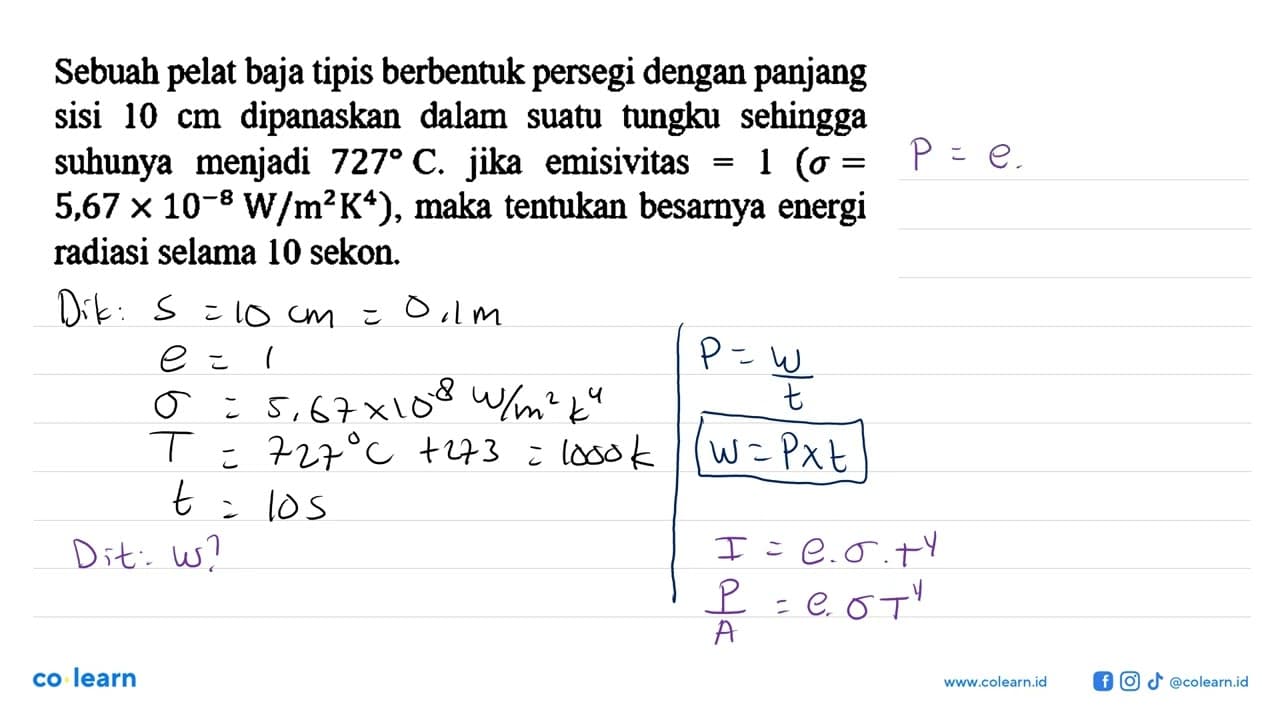 Sebuah pelat baja tipis berbentuk persegi dengan panjang
sisi 10 cm dipanaskan dalam suatu tungku sehingga
suhunya menjadi 727° C. jika emisivitas = 1 (σ =
5,67 × 10⁻⁸ W/m²K⁴), maka tentukan besarnya energi
radiasi selama 10 sekon.
P = e.
Dik: s = 10 cm = 0,1 m
e = 1
σ = 5,67 × 10⁻⁸ W/m² k⁴
T = 727°C + 273 = 1000 k
t = 10 s
Dit: w?
P = w/t
w = P x t
I = e.σ.T⁴
P/A = e.σT⁴
co learn
www.colearn.id
@colearn.id